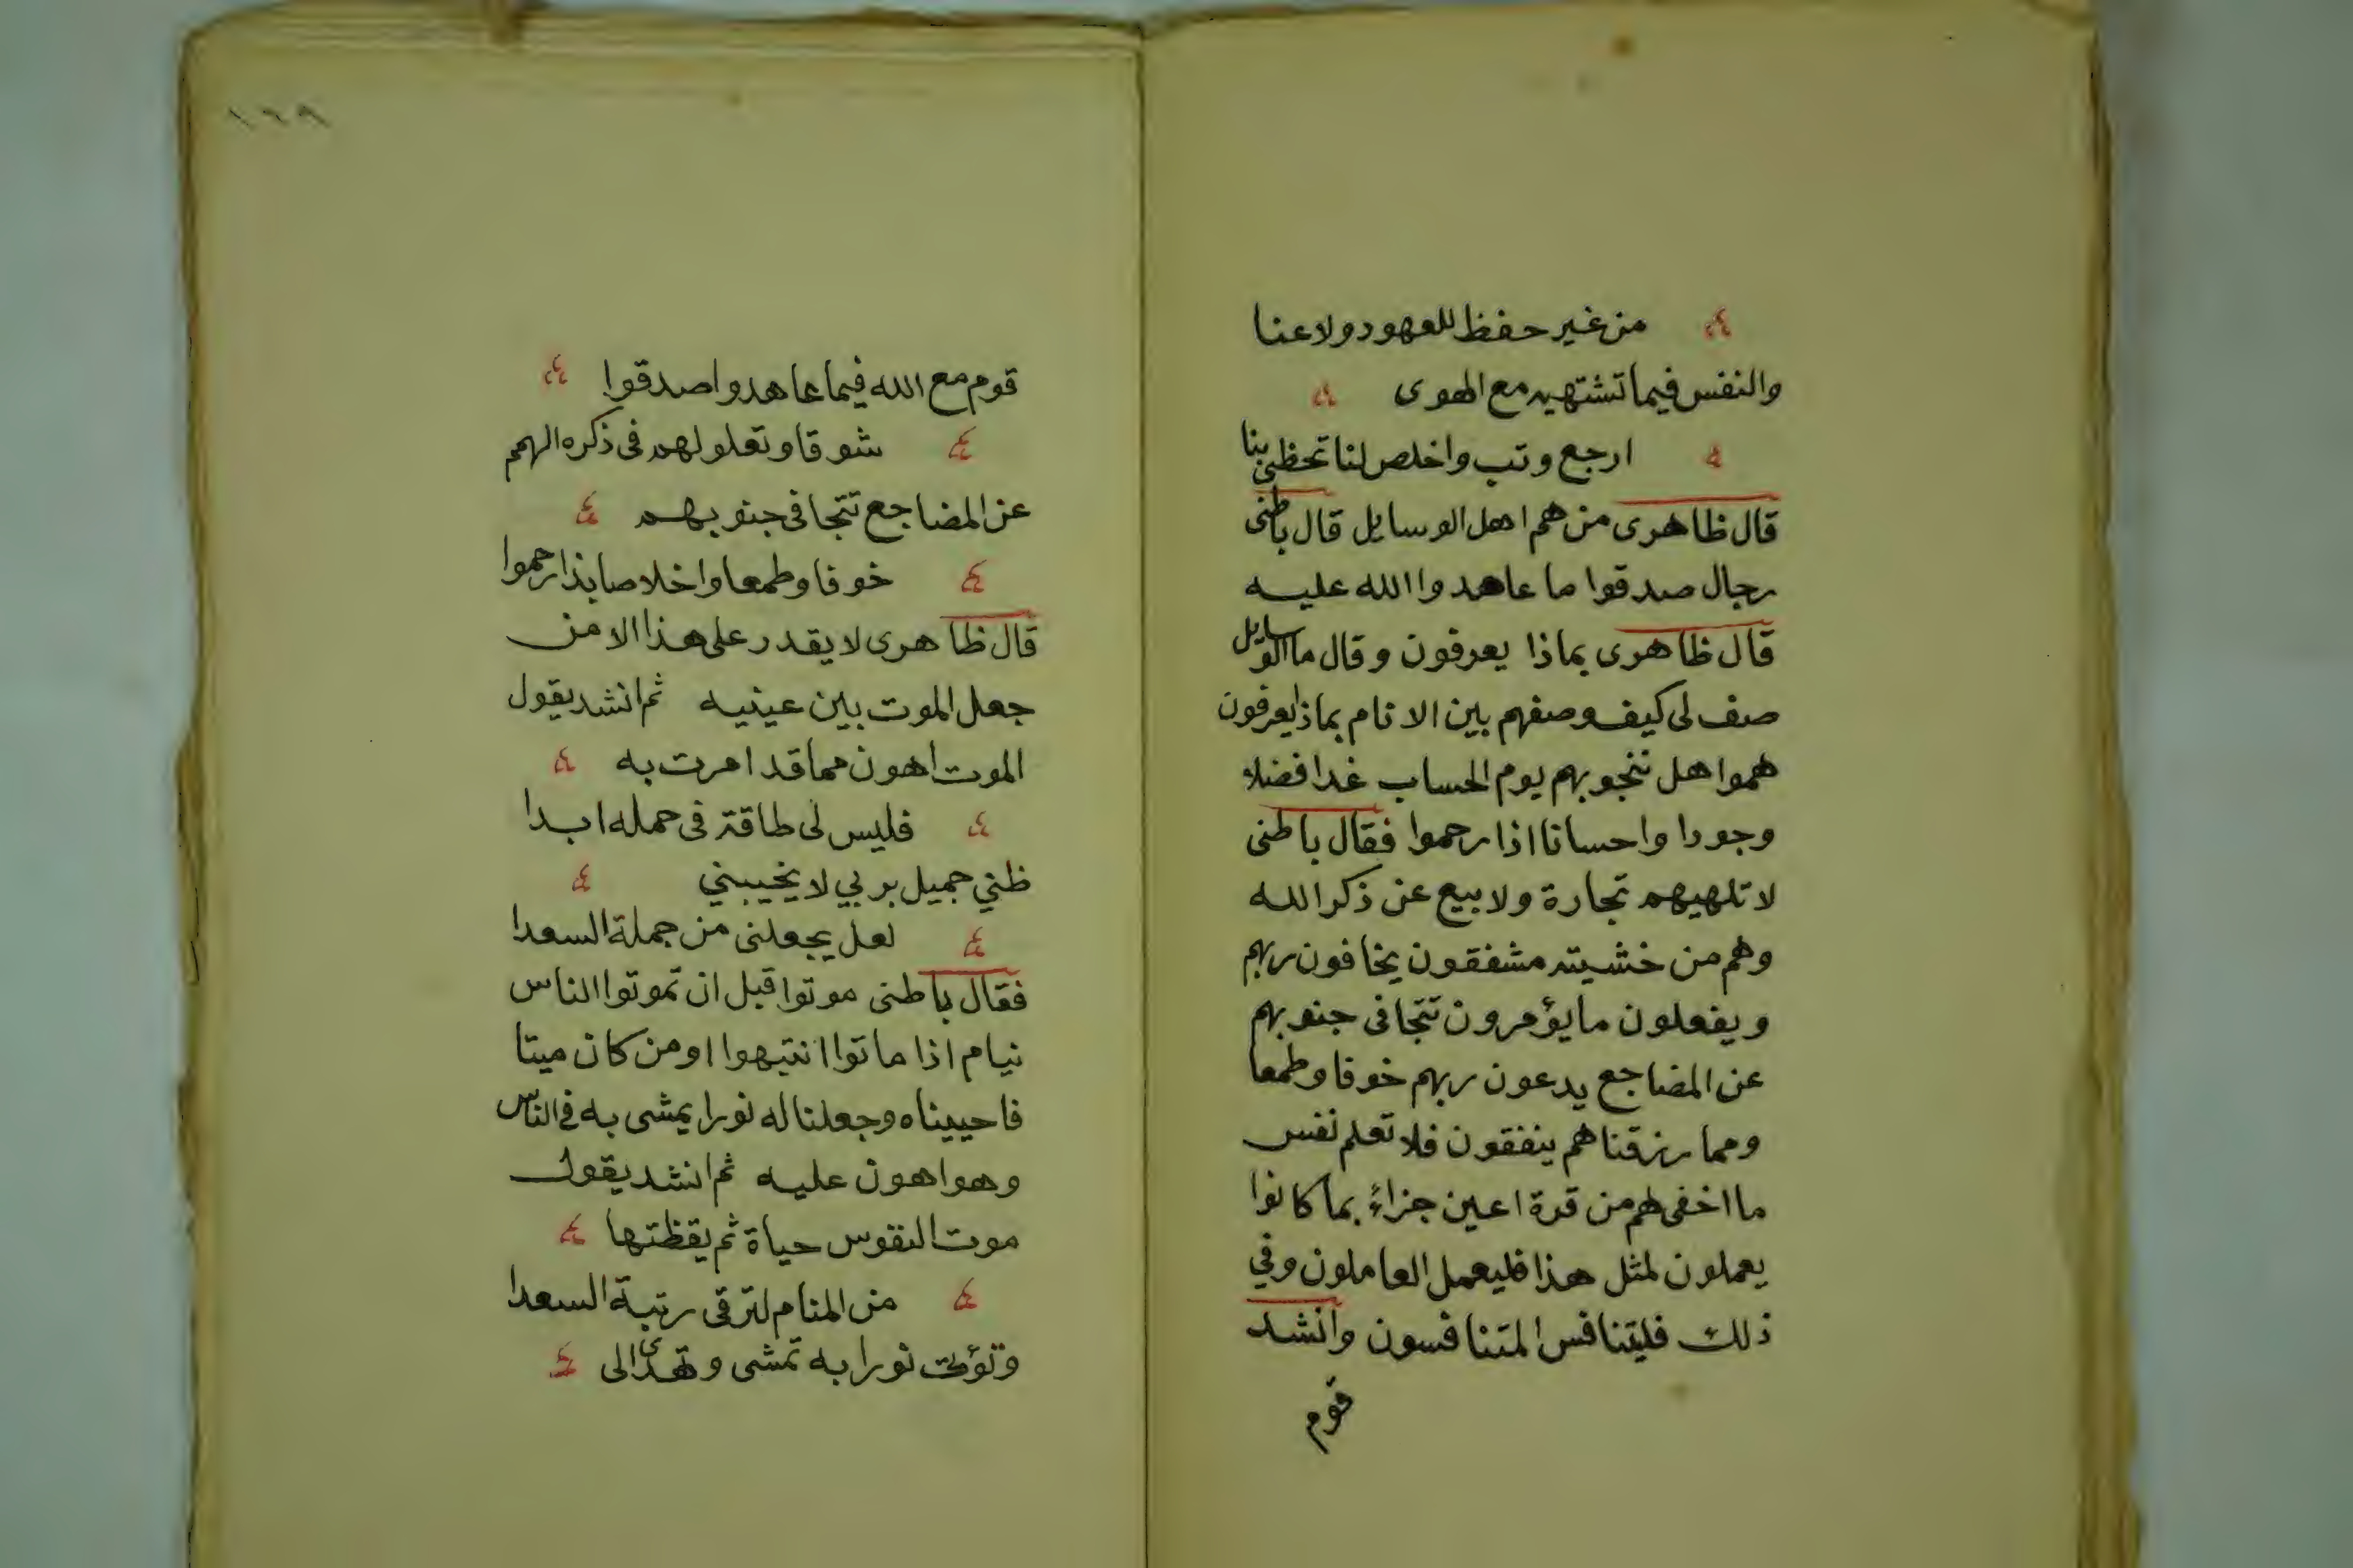 من غير حفظ للعهود ولا عنا
والنفس فيما تشتهيه مع الهوى
ارجع وتب واخلص لنا تحظى بنا
قال ظاهرى من هم اهل الوسايل قال باطنى
رجال صدقوا ما عاهدوا الله عليه
قال ظاهرى بماذا يعرفون وقال ما الوسايل
صف لى كيف وصفهم بين الانام بماذا يعرفون
هموا هل ننجو بهم يوم الحساب غدا فضلا
وجودا واحسانا اذا رحموا فقال باطنى
لا تلهيهم تجارة ولا بيع عن ذكر الله
وهم من خشيته مشفقون يخافون ربهم
ويفعلون ما يؤمرون تتجافى جنوبهم
عن المضاجع يدعون ربهم خوفا وطمعا
ومما رزقناهم ينفقون فلا تعلم نفس
ما اخفى لهم من قرة اعين جزاءً بما كانوا
يعملون لمثل هذا فليعمل العاملون وفي
ذلك فليتنافس المتنافسون وانشد
قوم
١٦٩
قوم مع الله فيما عاهدوا صدقوا
شوقا وتعلو لهم فى ذكره الهمم
عن المضاجع تتجافى جنوبهم
خوفا وطمعا واخلاصا بذا رحموا
قال ظاهرى لا يقدر على هذا الا من
جعل الموت بين عينيه ثم انشد يقول
الموت اهون مما قد امرت به
فليس لى طاقة فى حمله ابدا
ظني جميل بربي لا يخيبني
لعل يجعلنى من جملة السعدا
فقال باطنى موتوا قبل ان تموتوا الناس
نيام اذا ماتوا انتبهوا اومن كان ميتا
فاحييناه وجعلنا له نورا يمشى به فى الناس
وهو اهون عليه ثم انشد يقول
موت النفوس حياة ثم يقظتها
من المنام لترقى رتبة السعدا
وتؤت نورا به تمشى وتهدى الى